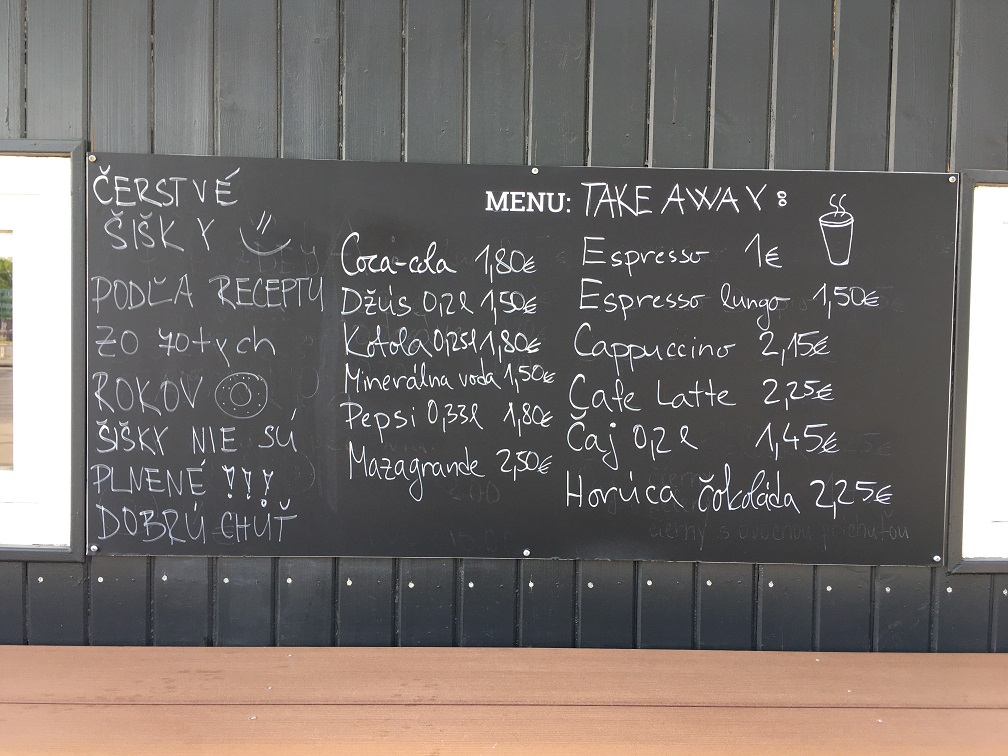 ČERSTVÉ
ŠIŠKY
PODĽA RECEPTU
ZO 70tych
ROKOV
ŠIŠKY NIE SÚ
PLNENÉ !!!
DOBRÚ CHUŤ
MENU: TAKE AWAY:
Coca-cola 1,80€
Džús 0,2l 1,50€
Kofola 0,25l 1,80€
Minerálna voda 1,50€
Pepsi 0,33l 1,80€
Mazagrande 2,50€
Espresso 1€
Espresso lungo 1,50€
Cappuccino 2,15€
Cafe Latte 2,25€
Čaj 0,2l 1,45€
Horúca čokoláda 2,25€